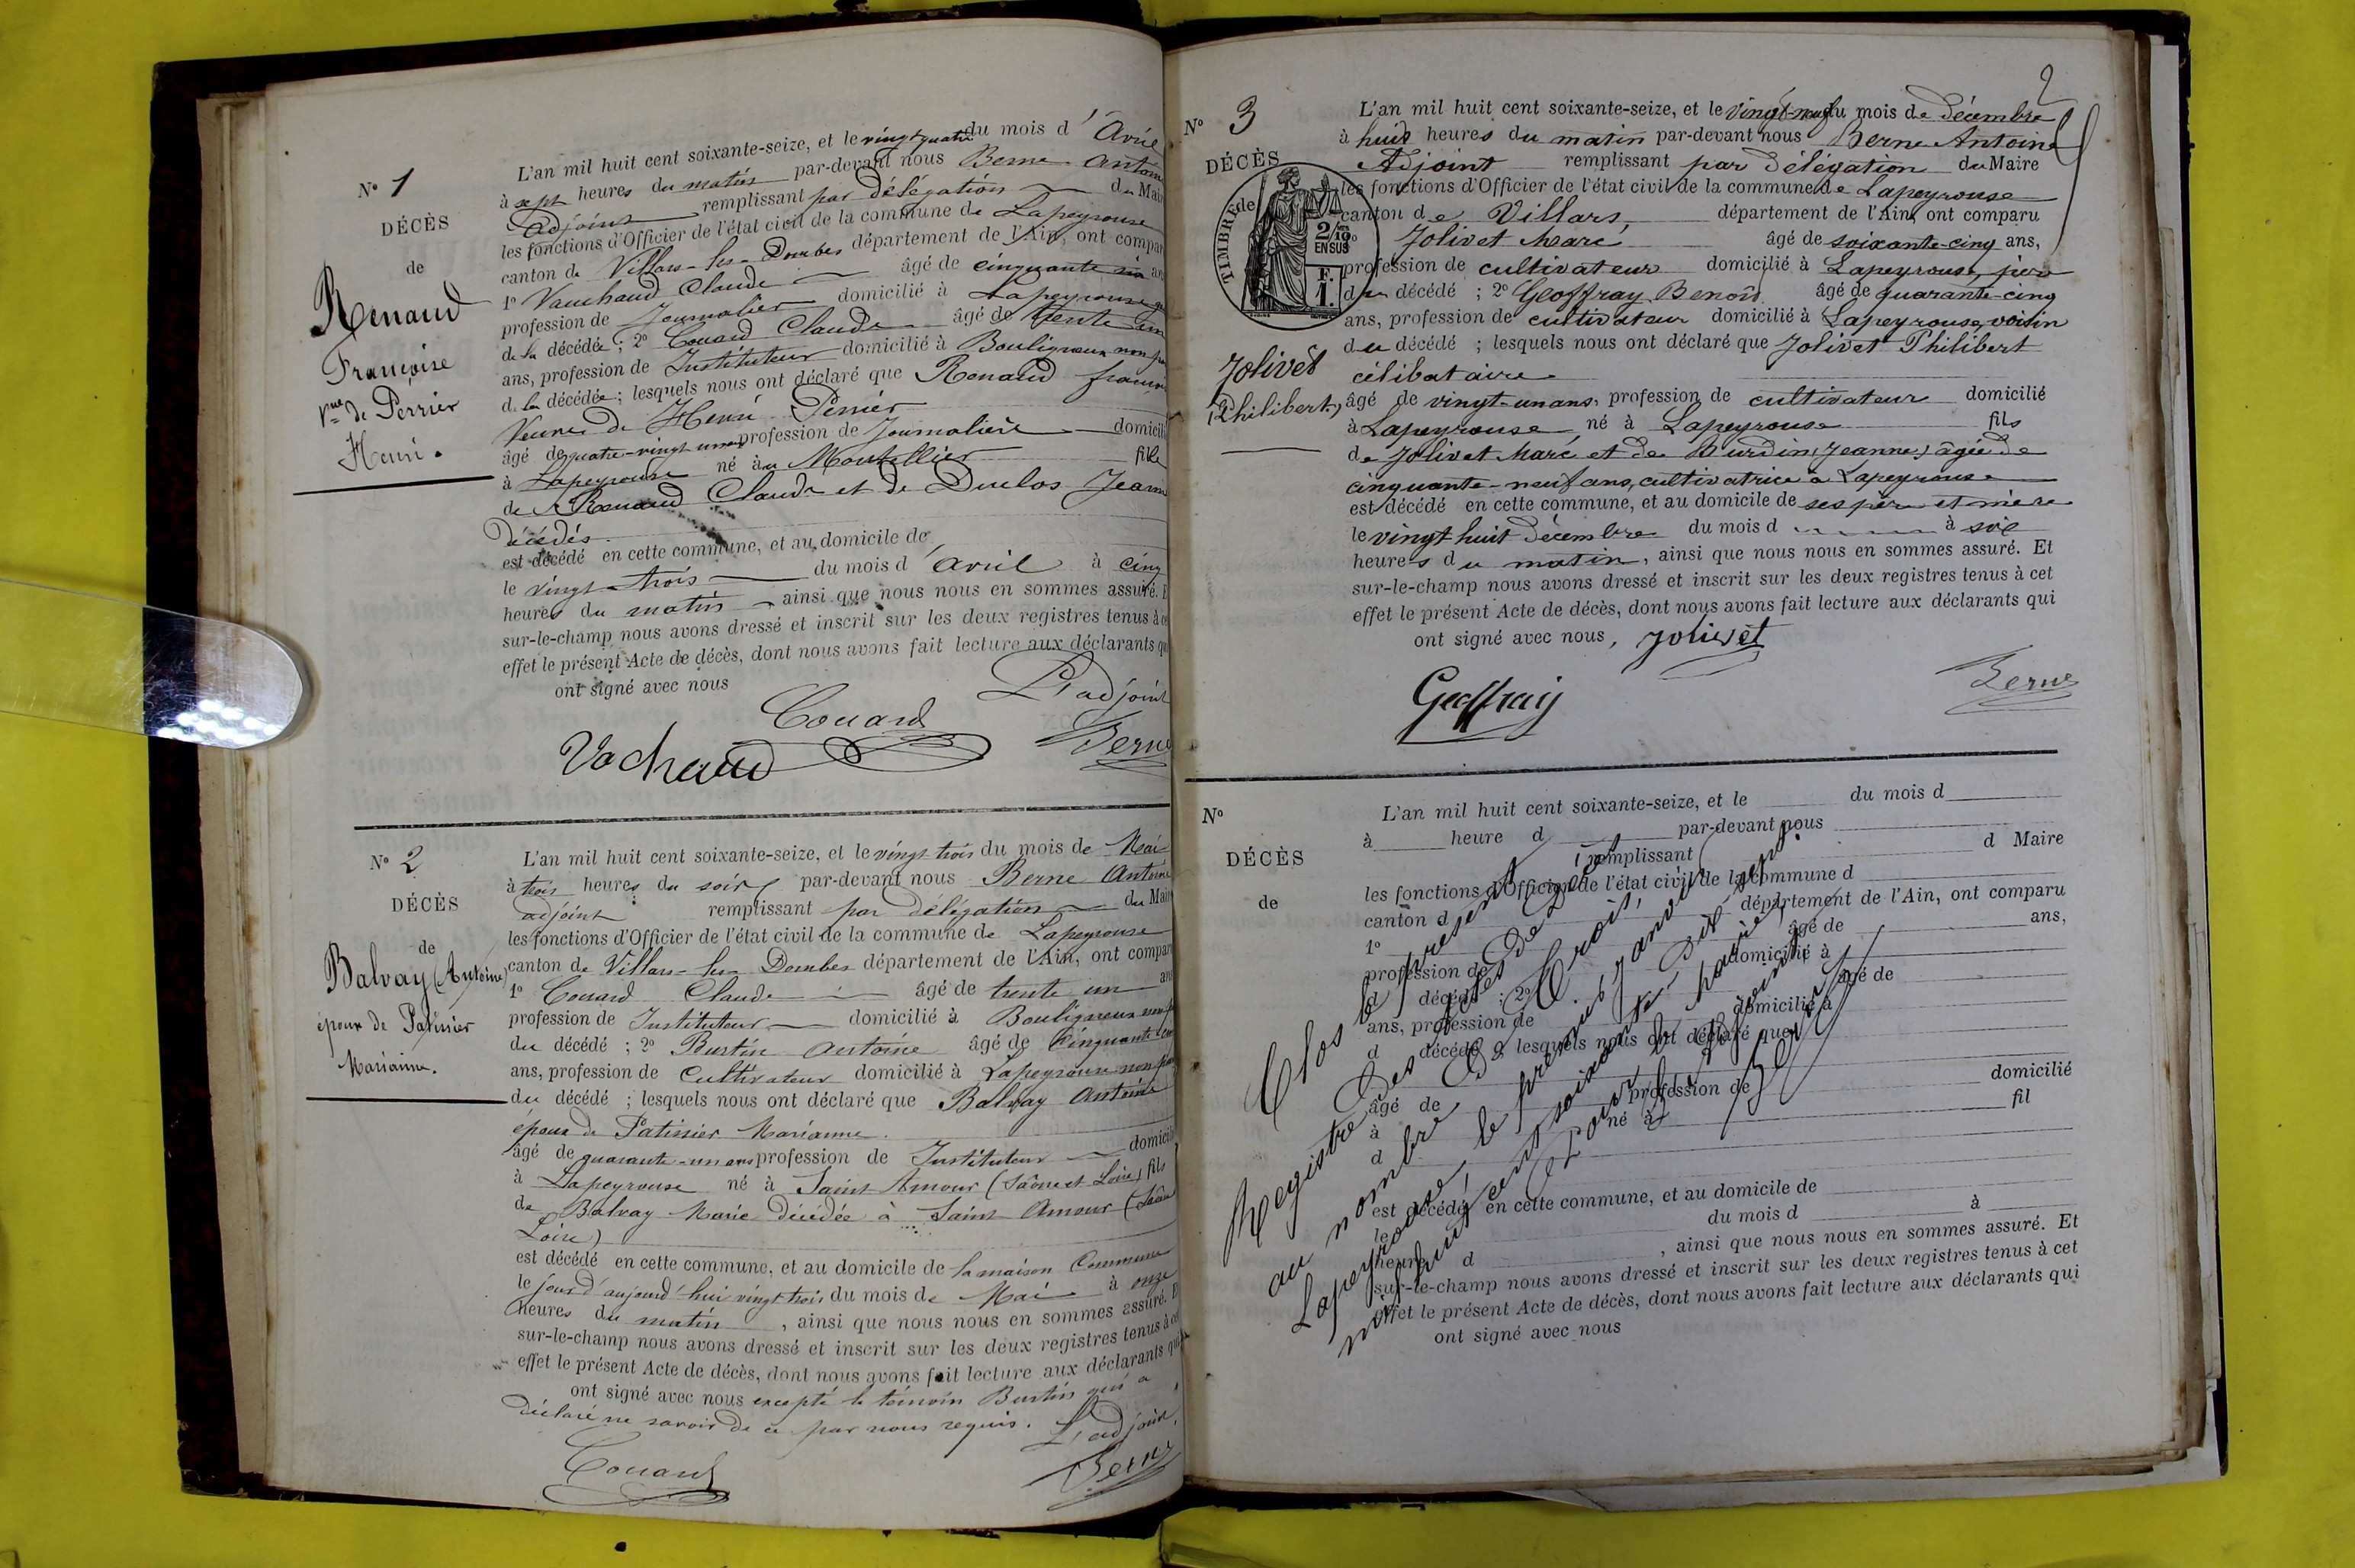 N° 1
DÉCÈS
de
Renaud
Françoise
Vve de Perrier
Henri.
L'an mil huit cent soixante-seize, et le vingt quatre du mois d'Avril
à sept heures du matin par-devant nous Berne Antoine
adjoint remplissant par délégation du Maire
les fonctions d'Officier de l'état civil de la commune de Lapeyrouse
canton de Villars-les-Dombes département de l'Ain, ont comparu
1° Vauchaud Claude âgé de cinquante six ans
profession de Journalier domicilié à Lapeyrouse
de la décédée ; 2° Couard Claude âgé de trente un
ans, profession de Instituteur domicilié à Bouligneux non
de la décédée ; lesquels nous ont déclaré que Renaud françoise
Veuve de Henri Perrier
âgé de quatre-vingt un ans profession de Journalière domicilié
à Lapeyrouse né à Montellier fille
de Renaud Claude et de Duclos Jeanne
décédés.
est décédé en cette commune, et au domicile de
le vingt-trois du mois d'avril à cinq
heures du matin ainsi que nous nous en sommes assuré. E
sur-le-champ nous avons dressé et inscrit sur les deux registres tenus à ce
effet le présent Acte de décès, dont nous avons fait lecture aux déclarants qu
ont signé avec nous
L'adjoint
Couard
Vachaud
Berne
N° 2
DÉCÈS
de
Balvay (Antoine)
époux de Patissier
Marianne.
L'an mil huit cent soixante-seize, et le vingt trois du mois de Mai
à trois heures du soir par-devant nous Berne Antoine
adjoint remplissant par délégation du Maire
les fonctions d'Officier de l'état civil de la commune de Lapeyrouse
canton de Villars-les-Dombes département de l'Ain, ont comparu
1° Couard Claude âgé de trente un ans
profession de Instituteur domicilié à Bouligneux non
du décédé ; 2° Burtin Antoine âgé de Cinquante
ans, profession de Cultivateur domicilié à Lapeyrouse non
du décédé ; lesquels nous ont déclaré que Balvay Antoine
époux de Patissier Marianne.
âgé de quarante-un ans profession de Instituteur domicilié
à Lapeyrouse né à Saint Amour (Saône et Loire) fils
de Balvay Marie décédée à Saint Amour (Saône
Loire)
est décédé en cette commune, et au domicile de la maison Commune
le jour d'aujourd'hui vingt trois du mois de Mai à onze
heures du matin, ainsi que nous nous en sommes assuré. E
sur-le-champ nous avons dressé et inscrit sur les deux registres tenus à ce
effet le présent Acte de décès, dont nous avons fait lecture aux déclarants qui
ont signé avec nous excepté le témoin Burtin qui a
déclaré ne savoir de ce par nous requis.
L'adjoint,
Couard
Berne
2
N° 3
DÉCÈS
de
TIMBRE
2/10es
EN SUS
F.
1.
Jolivet
(Philibert)
L'an mil huit cent soixante-seize, et le vingt-neuf du mois de décembre
à huit heures du matin par-devant nous Berne Antoine
Adjoint remplissant par délégation du Maire
les fonctions d'Officier de l'état civil de la commune de Lapeyrouse
canton de Villars, département de l'Ain, ont comparu
Jolivet Marc, âgé de soixante-cinq ans,
profession de cultivateur domicilié à Lapeyrouse, père
du décédé ; 2° Geoffray Benoît âgé de quarante-cinq
ans, profession de cultivateur domicilié à Lapeyrouse, voisin
du décédé ; lesquels nous ont déclaré que Jolivet Philibert
célibataire
âgé de vingt-un ans, profession de cultivateur domicilié
à Lapeyrouse né à Lapeyrouse fils
de Jolivet Marc et de Burdin (Jeanne) âgée de
cinquante-neuf ans, cultivatrice à Lapeyrouse
est décédé en cette commune, et au domicile de ses père et mère
le vingt huit décembre du mois d à six
heures du matin, ainsi que nous nous en sommes assuré. Et
sur-le-champ nous avons dressé et inscrit sur les deux registres tenus à cet
effet le présent Acte de décès, dont nous avons fait lecture aux déclarants qui
ont signé avec nous, Jolivet
Geoffray
Berne
N°
DÉCÈS
de
L'an mil huit cent soixante-seize, et le du mois d
à heure d par-devant nous
remplissant d Maire
les fonctions d'Officier de l'état civil de la commune d
canton d département de l'Ain, ont comparu
1° âgé de ans,
profession de domicilié à
d décédé ; 2° âgé de
ans, profession de domicilié à
d décédé ; lesquels nous ont déclaré que
âgé de profession de domicilié
à né à fil
d
est décédé en cette commune, et au domicile de
le du mois d à
heure d , ainsi que nous nous en sommes assuré. Et
sur-le-champ nous avons dressé et inscrit sur les deux registres tenus à cet
effet le présent Acte de décès, dont nous avons fait lecture aux déclarants qui
ont signé avec nous
Clos le présent
Registre des actes de Décès
au nombre de trois,
Lapeyrouse, le premier janvier
mil huit cent soixante dix sept.
Pour le Maire,
l'adjoint,
Berne